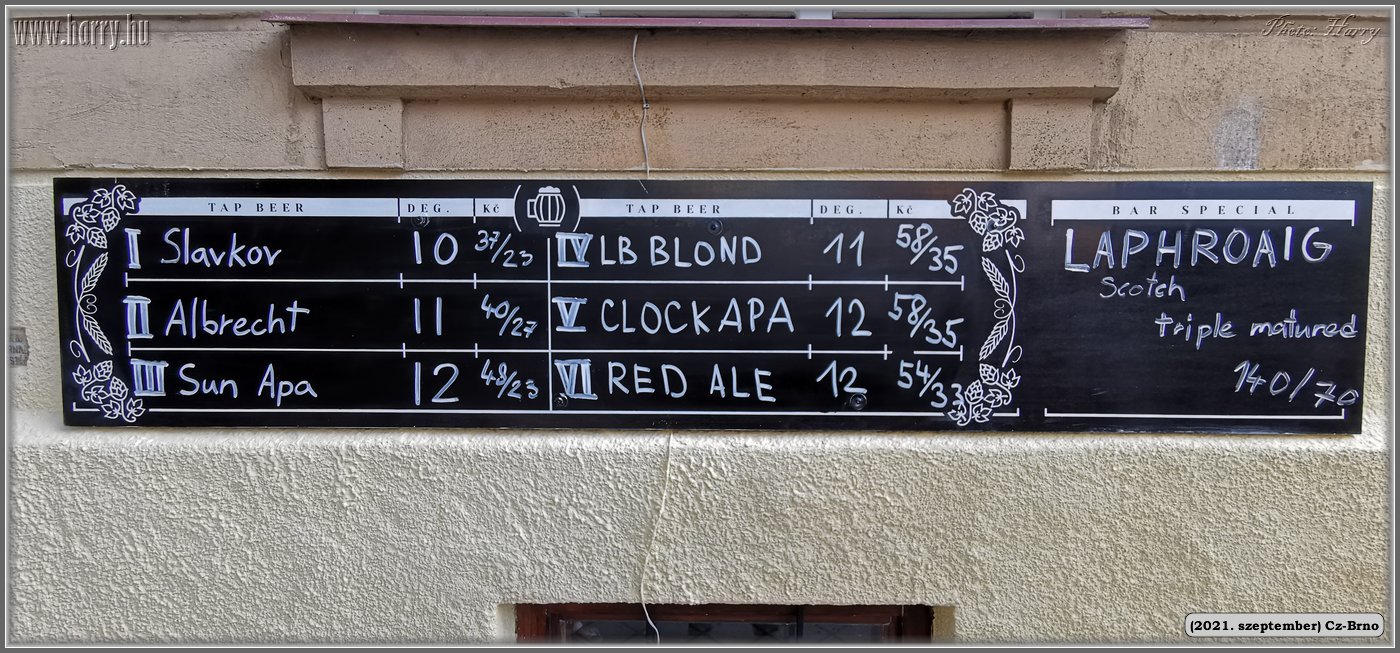 www.harry.hu
Photo: Harry
TAP BEER DEG. Kč
I Slavkov 10 37/23
II Albrecht 11 40/27
III Sun Apa 12 48/23
TAP BEER DEG. Kč
IV LB BLOND 11 58/35
V CLOCK APA 12 58/35
VI RED ALE 12 54/33
BAR SPECIAL
LAPHROAIG
Scotch
triple matured
140/70
(2021. szeptember) Cz-Brno